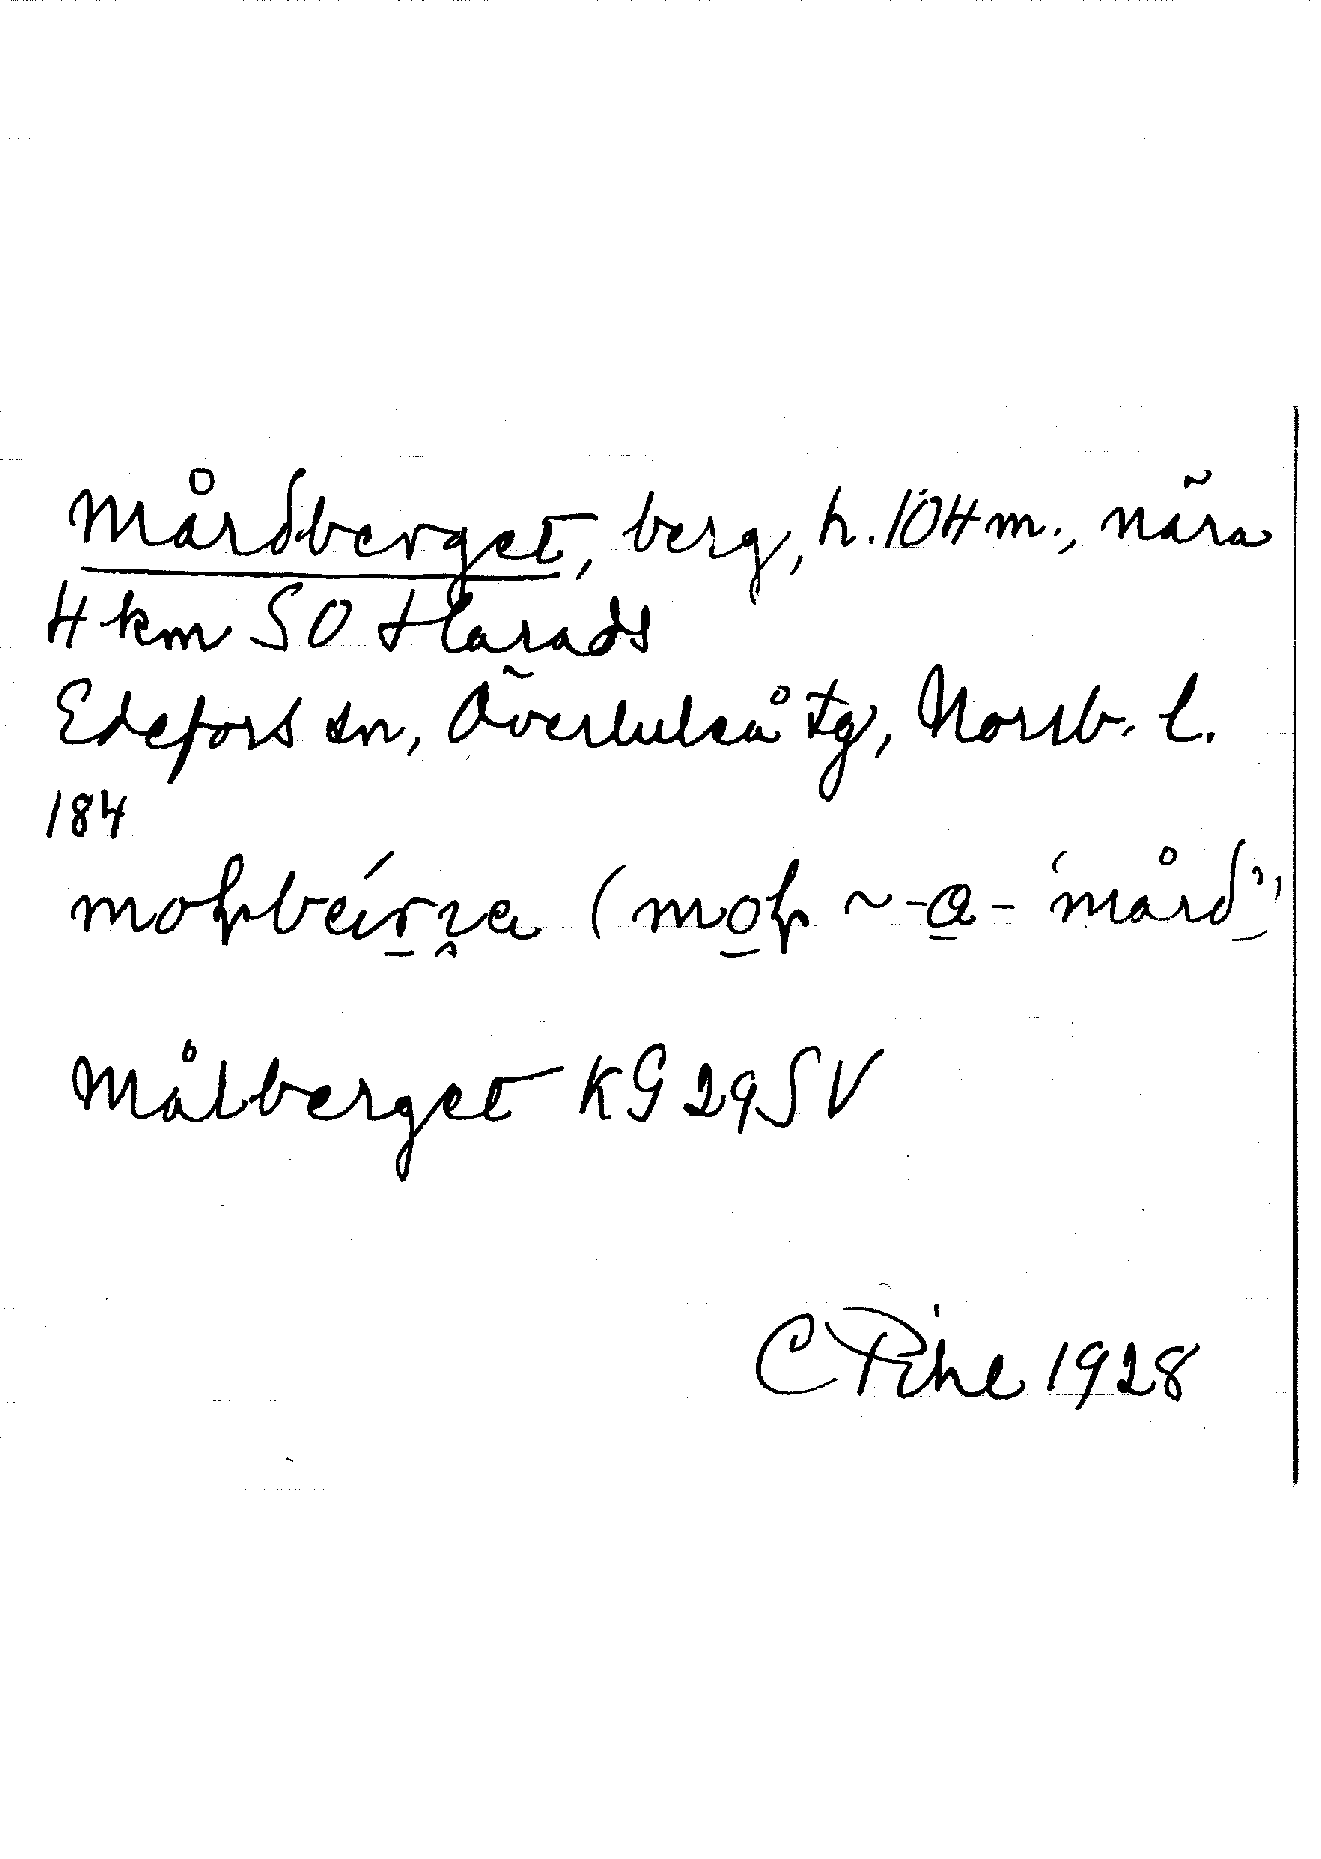 Mårdberget, berg, h. 104 m., nära
4 km SO Harads
Edefors sn, Överluleå tg, Norrb. l.
184
(mo ~ -a- 'mård')
Målberget KG 29 SV
C Pihl 1928